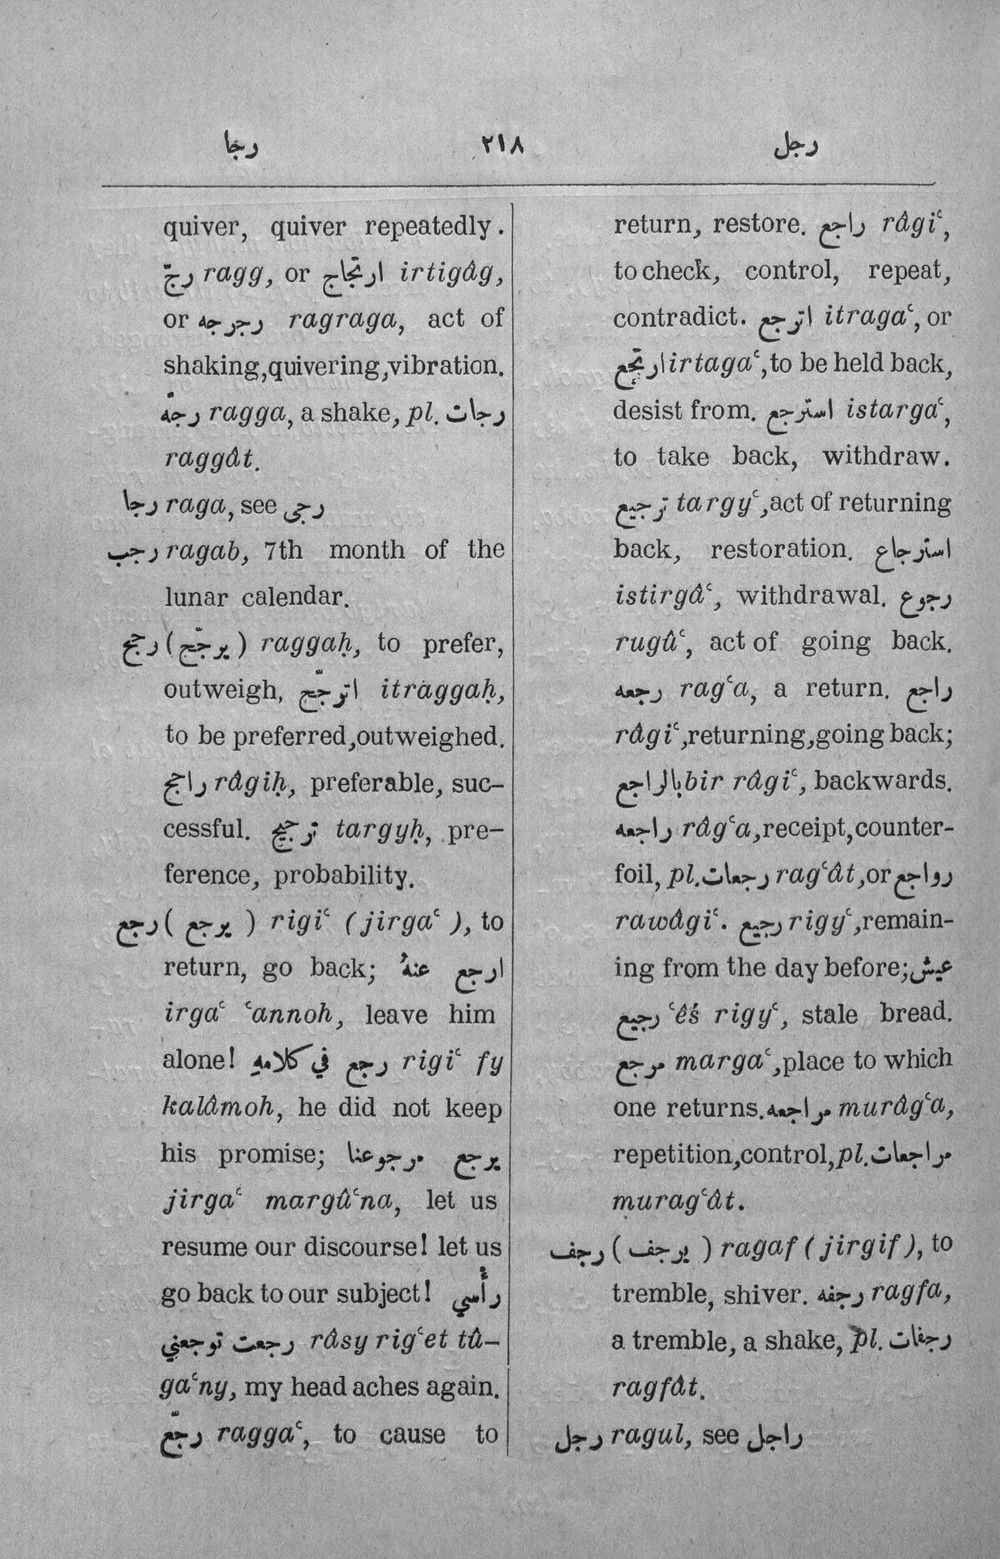 رجا ٢١٨ رجل
quiver, quiver repeatedly.
رجّ ragg, or ارتجاج irtigâg,
or رجرجه ragraga, act of
shaking, quivering, vibration.
رجّه ragga, a shake, pl. رجات
raggât.
رجا raga, see رجى
رجب ragab, 7th month of the
lunar calendar.
رجح (يرجّح) raggaḥ, to prefer,
outweigh, اترجّح itraggaḥ,
to be preferred, outweighed.
راجح râgiḥ, preferable, suc-
cessful. ترجيح targyḥ, pre-
ference, probability.
رجع (يرجع) rigiʿ (jirgaʿ), to
return, go back; ارجع عنهُ
irgaʿ ʿannoh, leave him
alone! رجع في كلامهِ rigiʿ fy
kalâmoh, he did not keep
his promise; يرجع مرجوعنا
jirgaʿ margûʿna, let us
resume our discourse! let us
go back to our subject! رأسي
رجعت توجعني râsy rigʿet tû-
gaʿny, my head aches again.
رجّع raggaʿ, to cause to
return, restore. راجع râgiʿ,
to check, control, repeat,
contradict. اترجع itragaʿ, or
ارتجع irtagaʿ, to be held back,
desist from. استرجع istargaʿ,
to take back, withdraw.
ترجيع targyʿ, act of returning
back, restoration. استرجاع
istirgâʿ, withdrawal. رجوع
rugûʿ, act of going back.
رجعه ragʿa, a return. راجع
râgiʿ, returning, going back;
بالراجع bir râgiʿ, backwards.
راجعه râgʿa, receipt, counter-
foil, pl. رجعات ragʿât, or رواجع
rawâgiʿ. رجيع rigyʿ, remain-
ing from the day before; عيش
رجيع ʿêś rigyʿ, stale bread.
مرجع margaʿ, place to which
one returns. مراجعه murâgʿa,
repetition, control, pl. مراجعات
muragʿât.
رجف (يرجف) ragaf (jirgif), to
tremble, shiver. رجفه ragfa,
a tremble, a shake, pl. رجفات
ragfât.
رجل ragul, see راجل